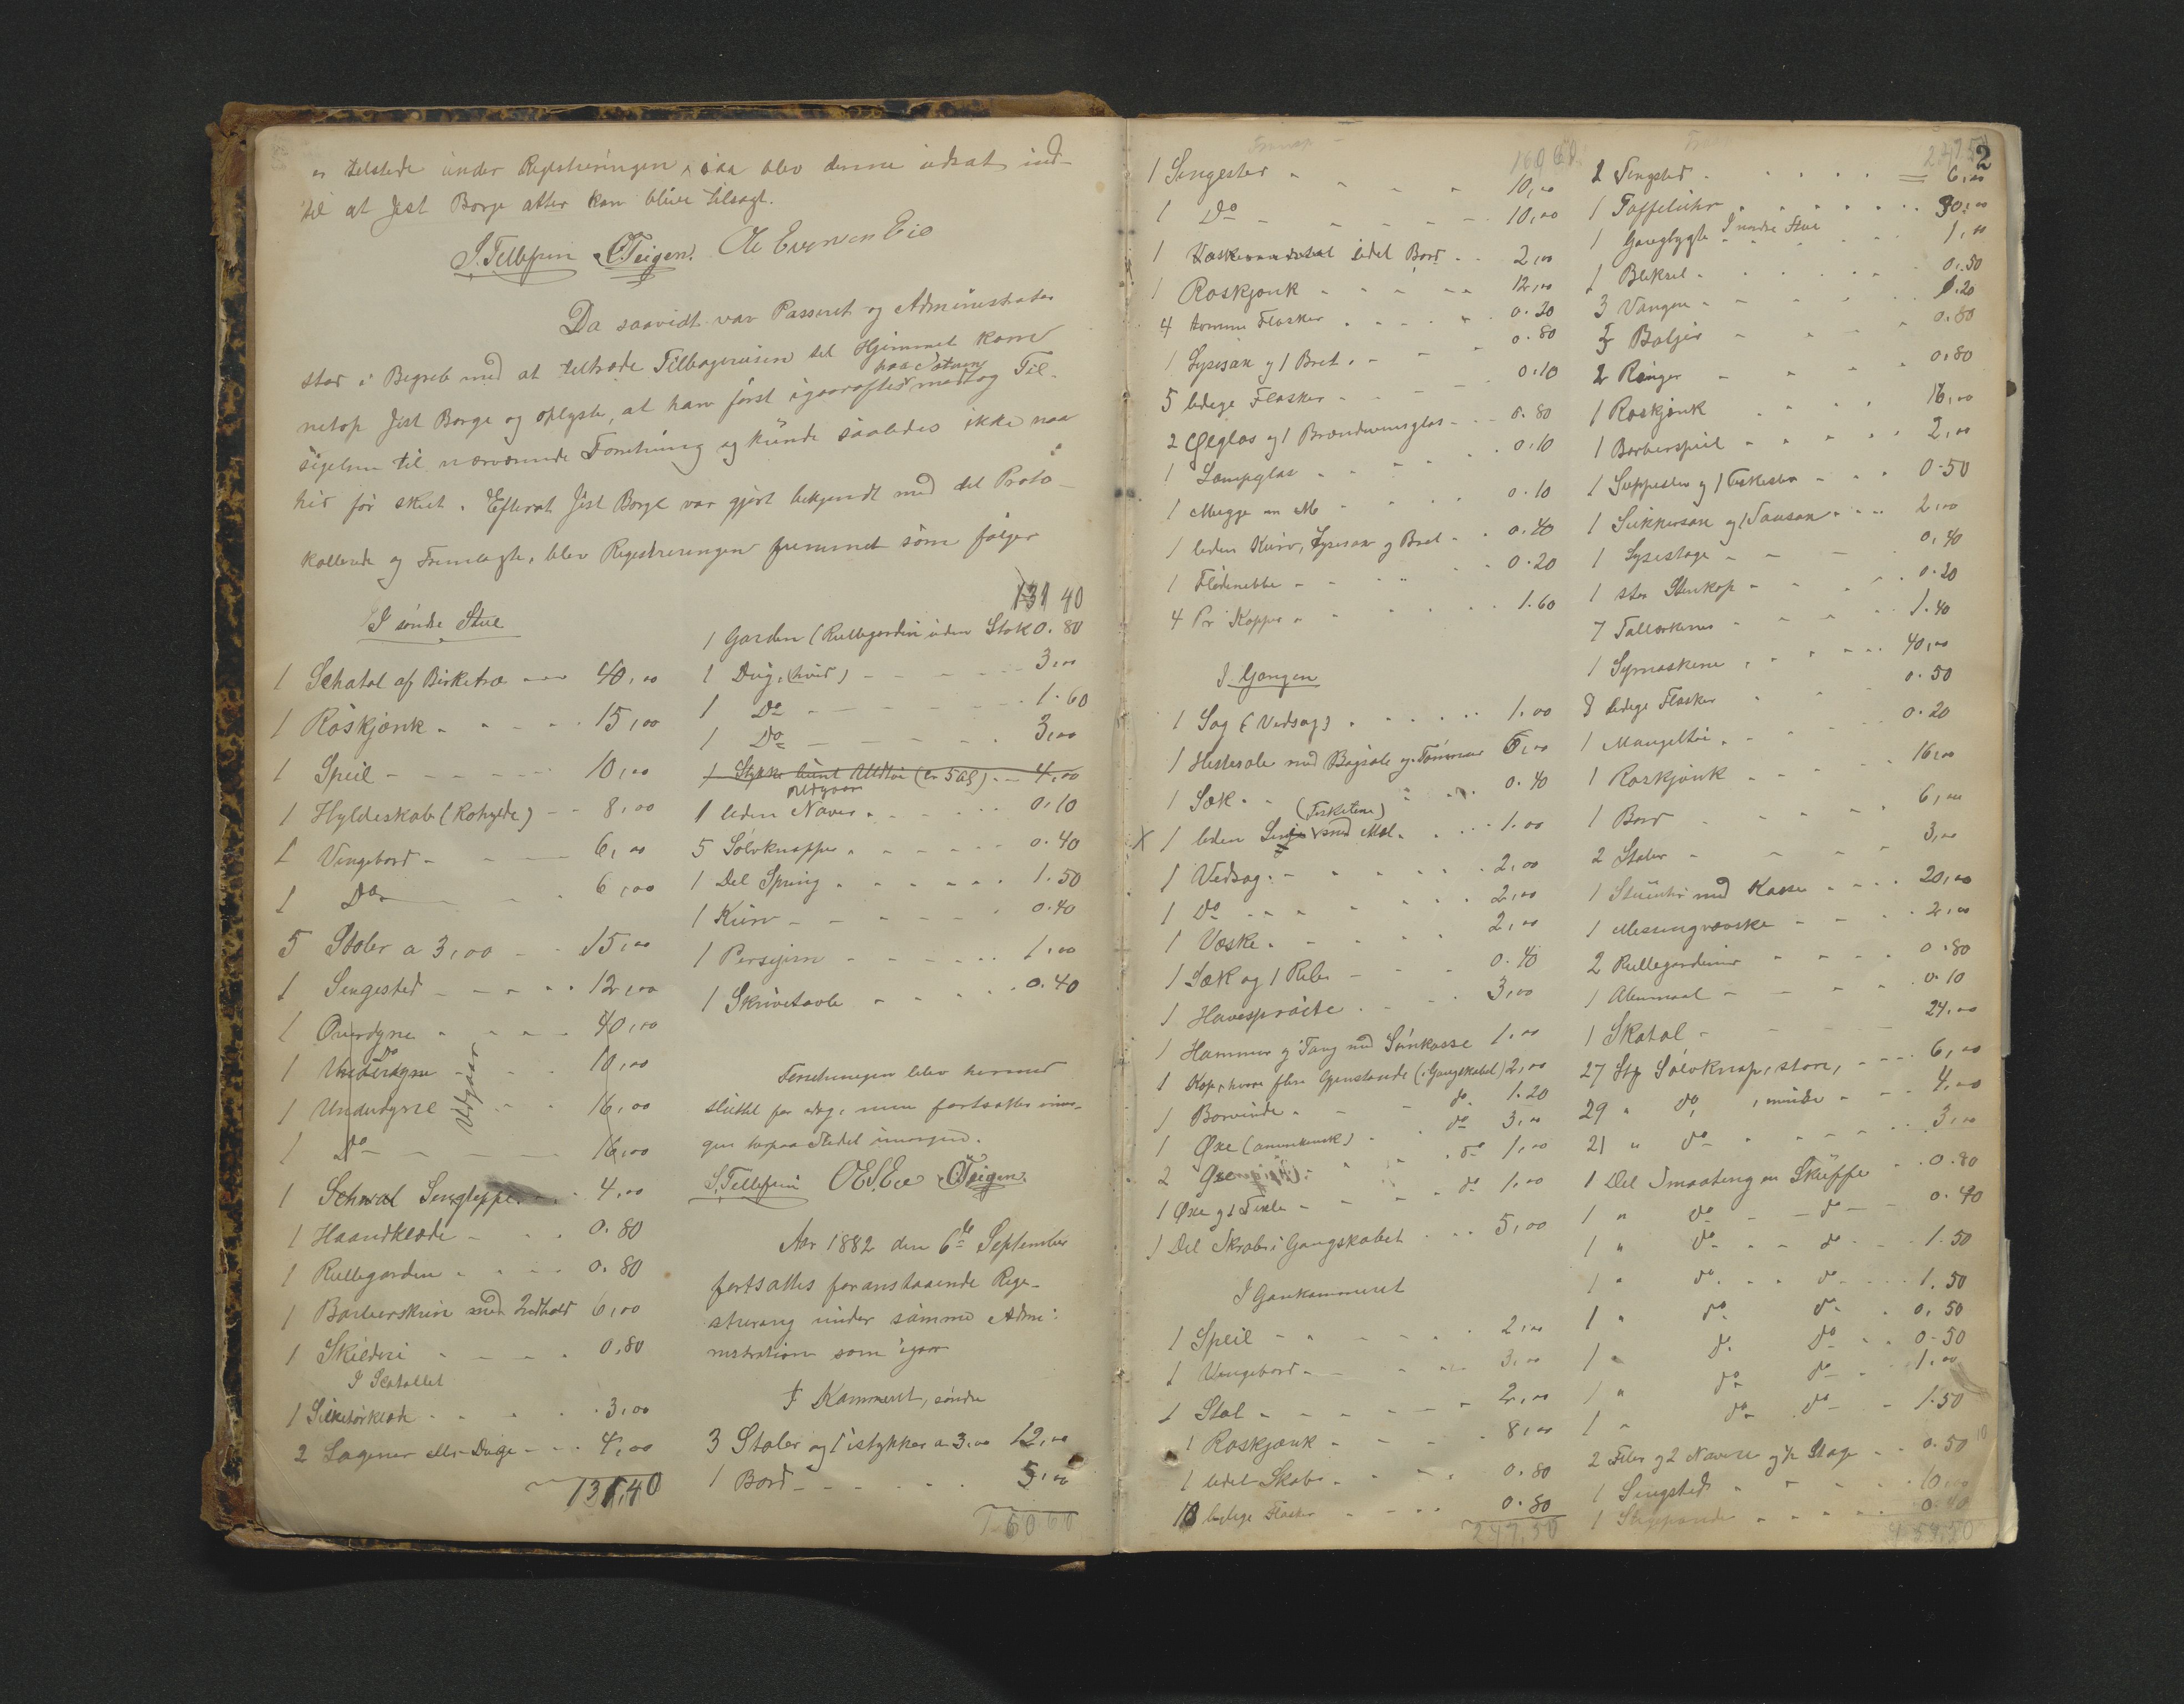 er tilstede under Registreringen, saa blev denne udsat ind-
til at Jest Borge atter kan blive tilsagt.
S. Tellefsen CTeigen. Ole Evensen Eie
Da saavidt var Passeret og Administrator
stod i Begreb med at tiltræde Tilbagereisen til Hjemmet kom
netop Jest Borge og oplyste, at han først igaaraftes modtog Til-
sigelsen til nærværende Forretning og kunde saaledes ikke naa
hid før skeet. Efterat Jest Borge var gjort bekjendt med det Proto-
kollerede og Fremlagte, blev Registreringen fremmet som følger
I søndre Stue
1 Schatol af Birketræ 40,00
1 Roskjænk 15,00
1 Speil 10,00
1 Hyldeskab (Rohylde) 8,00
1 Vingebord 6,00
1 Do 6,00
5 Stoler a 3,00 15,00
1 Sengested 12,00
1 Overdyne 40,00
1 Do 10,00
1 Underdyne 16,00
1 Do 16,00
Udgaar
1 Sengteppe 4,00
1 Haandklæde 0.80
1 Rullegardin 0.80
1 Barberskrin med Indhold 6,00
1 Skilderi 0.80
I Scatollet
1 Silketørklæde 3,00
2 Lagener eller Duge 4,00
131,40
131 40
1 Gardin (Rullegardin uden Stok 0.80
1 Dug, (hvid) 3,00
1 Do 1.60
1 Do 3,00
1 Stykke tündt Uldtøi (ca 5 al) 4,00
udgaar
1 liden Naver 0.10
5 Sølvknapper 0.40
1 Del Spring 1.50
1 Kurv 0.40
1 1,00
1 Skrivetavle 0.40
Forretningen blev hermed
sluttet for idag, men fortsættes
her paa Stedet imorgen.
S. Tellefsen OESEie CTeigen
Aar 1882 den 6te September
fortsattes foranstaaende Regi-
strering under samme Admi:
nistration som igaar
I Kammeret, søndre
3 Stoler og 1 istykker a 3,00 12,00
1 Bord 5,00
160 60
160 60
1 Sengested 10,00
1 Do 10,00
1 lidet Bord 2,00
1 Roskjænk 12,00
4 tomme Flasker 0.20
1 Lysesax og 1 Bret 0.80
5 ledige Flasker 0.10
2 Ølglas og 1 Brændevinsglas 0.80
1 Lampeglas 0.10
1 Mugge 0.10
1 liden Kurv, Lysesax og Bret 0.40
1 Flødenebbe 0.20
4 Pr Kopper 1.60
I Gangen
1 Sag (Vedsag) 1.00
1 Hestesæle med Bogsæle og Tømmer 6,00
1 Sæk 0.40
(Fisketine)
X 1 liden med Mel 1.00
1 Vedsag 2,00
1 Do 2,00
1 Væske 2,00
1 Sæk og 1 Reb 0.40
1 Havesprøite 3,00
1 Hammer og Tang med Sømkasse 1,00
1 Kop, hvori flere Gjenstande (i Gangskabet) 2,00
1 Borvinde do 1.20
1 Øxe (amerikansk) do 3,00
2 Øxe do 1,00
1 Øxe og 1 do 1.00
1 Del Skrab i Gangskabet 5,00
I Gankammeret
1 Speil 2,00
1 Vingebord 3,00
1 Stol 2,00
1 Roskjænk 8,00
1 lidet Skab 0.80
10 ledige Flasker 0.80
247,50
247,50
2
1 Sengsted 6,00
1 Taffeluhr 30,00
I nordre Stue
1 Ganglygte 1,00
1 Blikseil 0.50
3 Vanger 0.20
3 Baljer 0.80
2 Ringer 0.80
1 Roskjænk 16,00
1 Barberspeil 2,00
1 Suppeslev og 1 Fiskeslev 0.50
1 Sukkersax og 1 Sausax 2,00
1 Lysestage 0.40
1 stor Stenkop 0.20
7 Tallærkener 1.40
1 Symaskine 40,00
8 ledige Flasker 0.50
1 Mangeltræ 0.20
1 Roskjænk 16,00
1 Bord 6,00
2 Stoler 3,00
1 Stueuhr med Kasse 20,00
1 Messingvæske 2,00
2 Rullegardiner 0.80
1 Alenmaal 0.10
1 Skatol 24,00
27 Stk Sølvknap, store, 6,00
29 " do, mindre 4,00
21 " do 3,00
1 Del Smaating en Skuffe 0.80
1 " do do 0.40
1 " do do 1.50
1 " do do 1.50
1 " do do 0.50
1 " do do 0.50
1 " do do 1.00
1 " do do 1.50
2 Files og 2 Navere og pr Stage 0.50
1 Sengsted 10,00
1 Stegepande 0.40
454,50